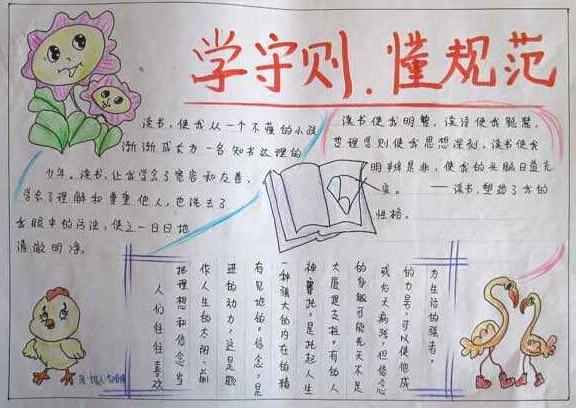 学守则.懂规范
读书,使我从一个不懂的小孩
渐渐成长为一名知书达理的
少年。读书,让我学会了宽容和友善,
学会了理解和尊重他人,也洗去了
我眼中的污浊,使之一日日地
清澈明净。
读书使我明智,读诗使我聪慧,
哲理学则使我思想深刻,读书使我
明辨是非,使我的头脑日益充
实。——读书,塑造了我的
性格。
人们往往喜欢
把理想和信念当
作人生的太阳、前
进的动力,这是颇
有见地的。信念,是
一种强大的内在的精
神寄托,是托起人生
大厦是支柱。有的人
的身躯可能先天不足
或后天病残,但信念
的力量,可以使他成
为生活的强者。